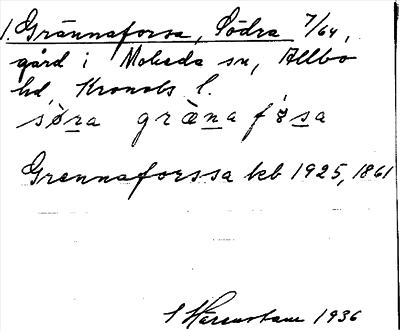 1. Grännaforsa, Södra 7/64,
gård i Moheda sn, Allbo
hd, Kronobs l.
søra græ̀na fɷ́sa
Grennaforssa kb 1925, 1861
1936